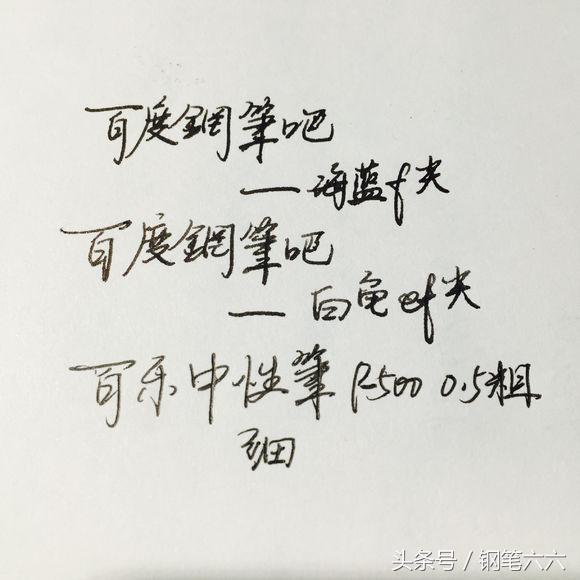 百度鋼筆吧
一海蓝f尖
百度鋼筆吧
一白龟ef尖
百乐中性筆P500 0.5粗
细
头条号／钢笔六六